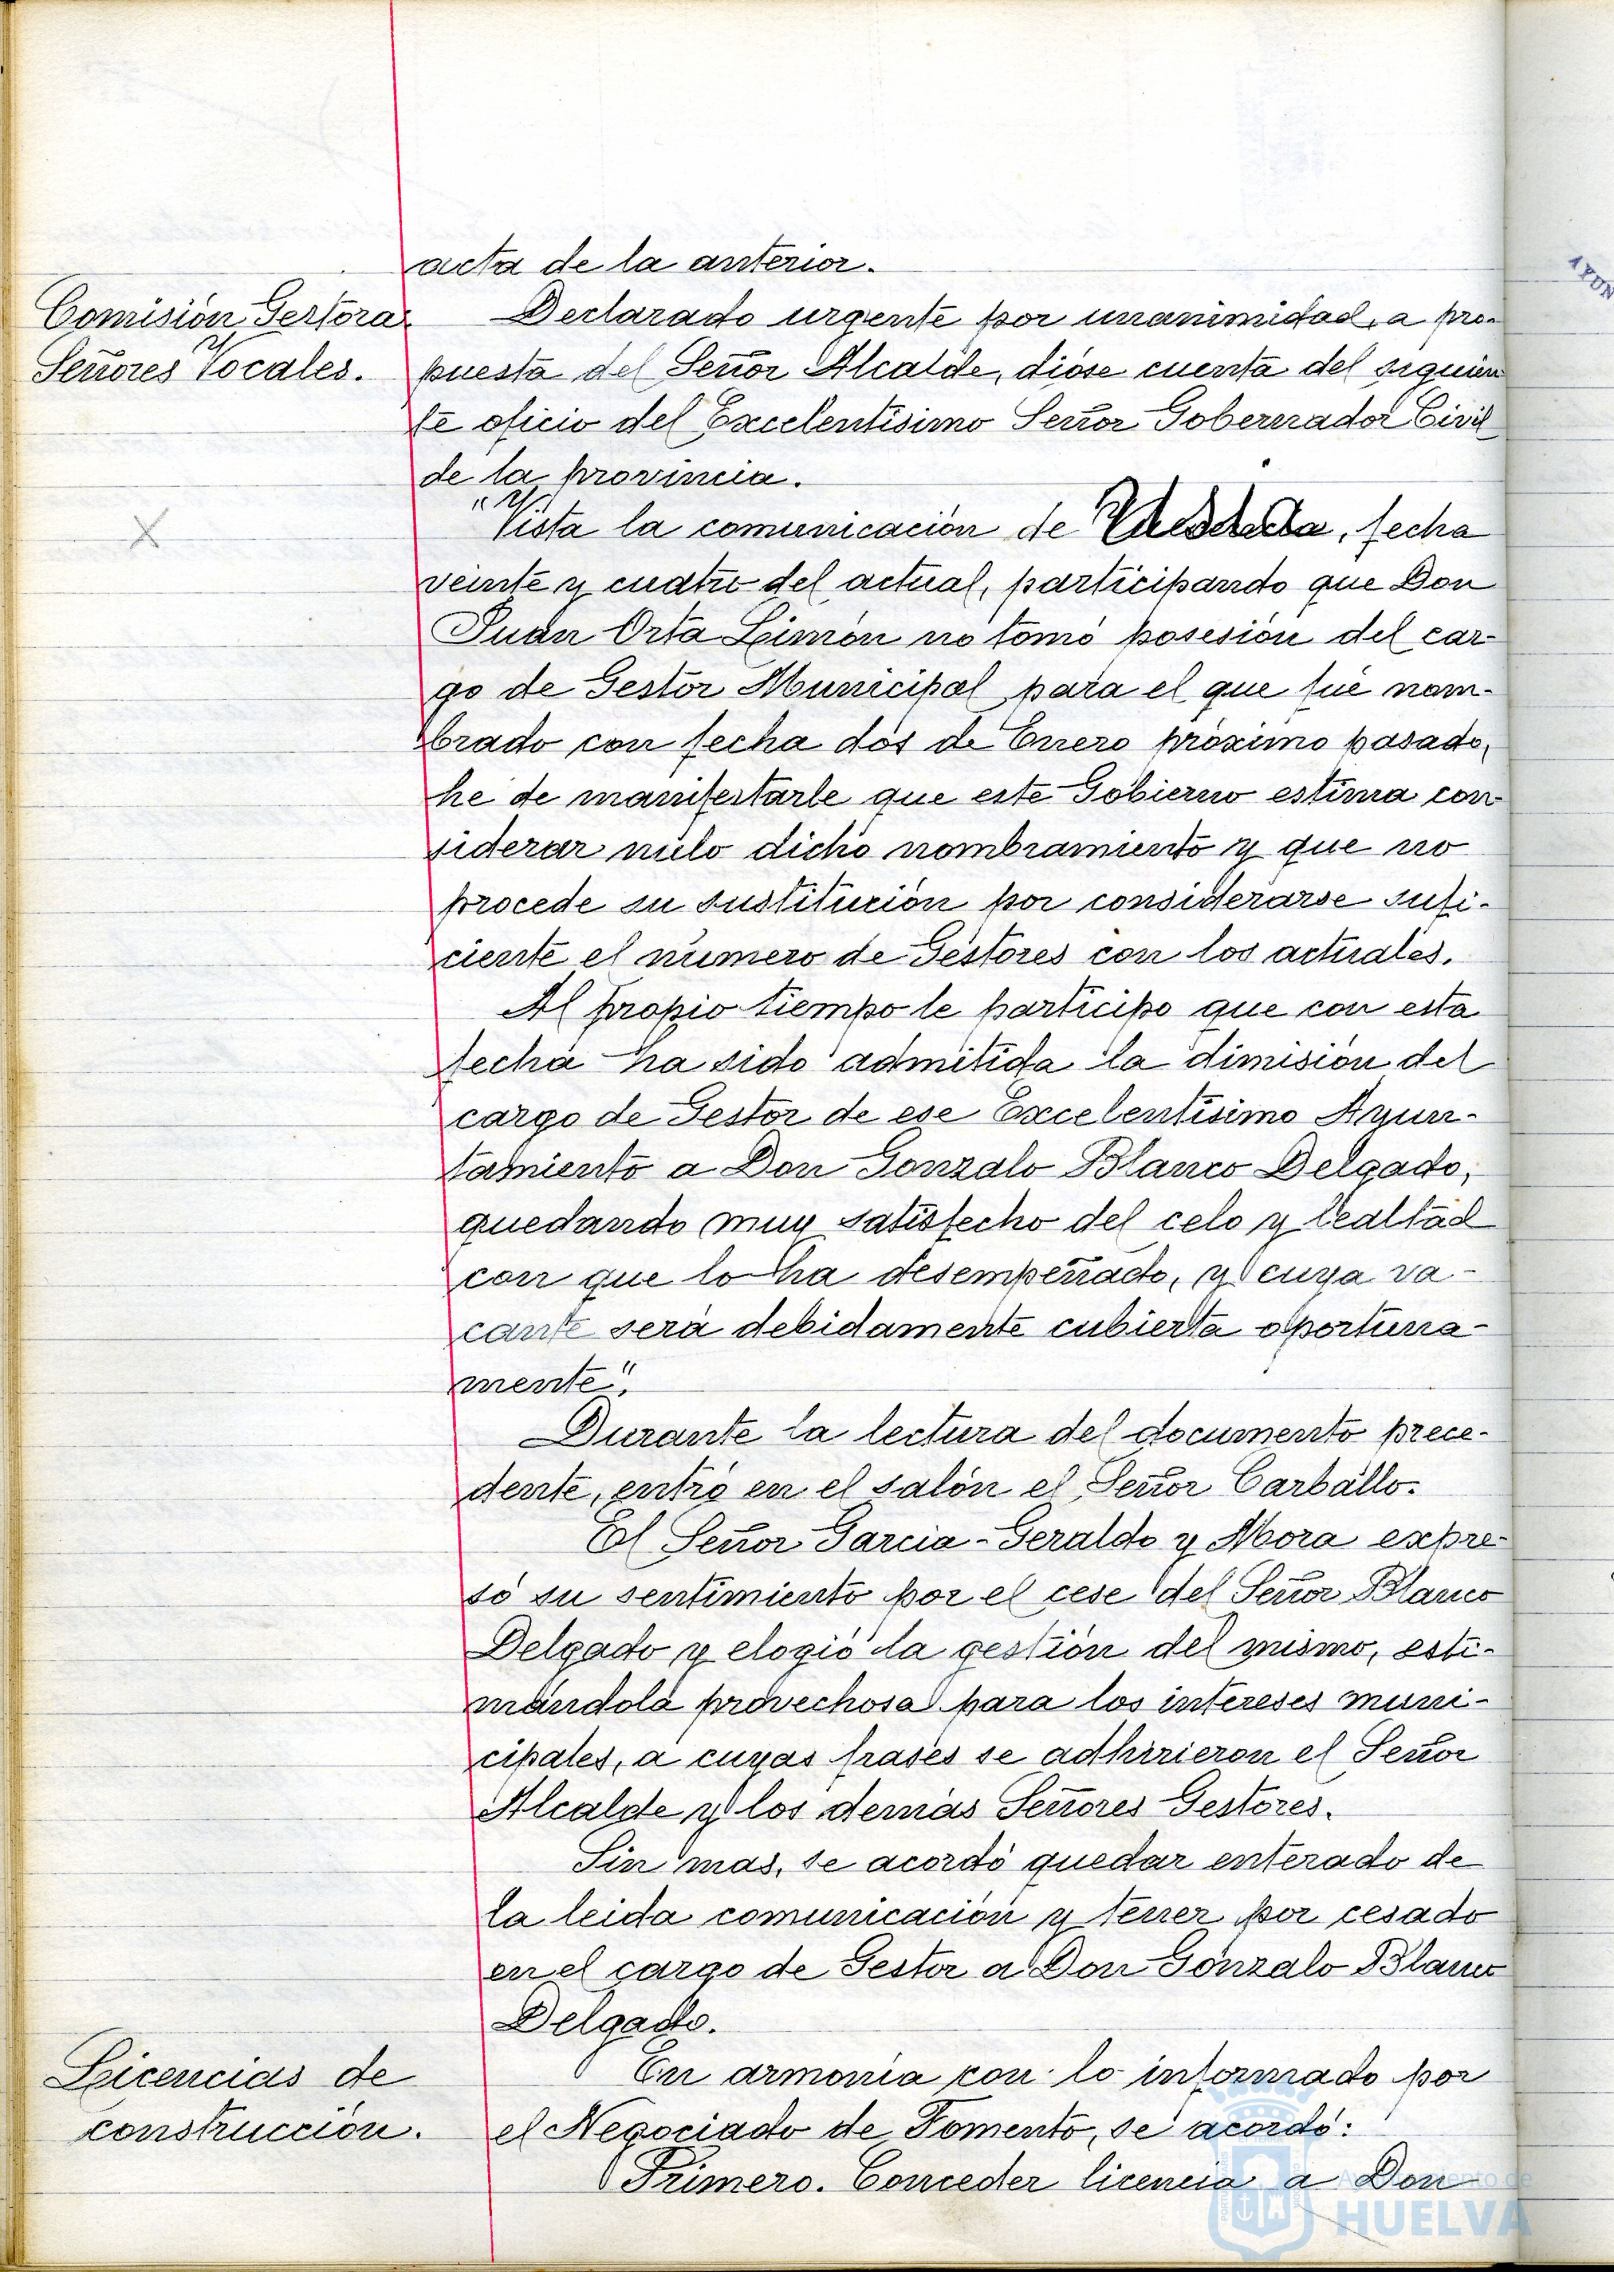 acta de la anterior.
Comisión Gestora
Señores Vocales.
Declarado urgente por unanimidad, a pro-
puesta del Señor Alcalde, dióse cuenta del siguien
te oficio del Excelentísimo Señor Gobernador Civil
de la provincia.
"Vista la comunicación de , fecha
veinte y cuatro del actual, participando que Don
Juan Orta Limón no tomó posesión del car-
go de Gestor Municipal para el que fué nom-
brado con fecha dos de Enero próximo pasado,
he de manifestarle que este Gobierno estima con-
siderar nulo dicho nombramiento y que no
procede su sustitución por considerarse sufi-
ciente el número de Gestores con los actuales.
Al propio tiempo le participo que con esta
fecha ha sido admitida la dimisión del
cargo de Gestor de ese Excelentísimo Ayun-
tamiento a Don Gonzalo Blanco Delgado,
quedando muy satisfecho del celo y lealtad
con que lo ha desempeñado, y cuya va-
cante será debidamente cubierta oportuna-
mente".
Durante la lectura del documento prece-
dente, entró en el salón el Señor Carballo.
El Señor Garcia-Geraldo y Mora expre-
só su sentimiento por el cese del Señor Blanco
Delgado y elogió la gestión del mismo, esti-
mándola provechosa para los intereses muni-
cipales, a cuyas frases se adhirieron el Señor
Alcalde y los demás Señores Gestores.
Sin mas, se acordó quedar enterado de
la leida comunicación y tener por cesado
en el cargo de Gestor a Don Gonzalo Blanco
Delgado.
Licencias de
construcción.
En armonía con lo informado por
el Negociado de Fomento, se acordó:
Primero. Conceder licencia a Don
Ayuntamiento de
HUELVA
AYUN